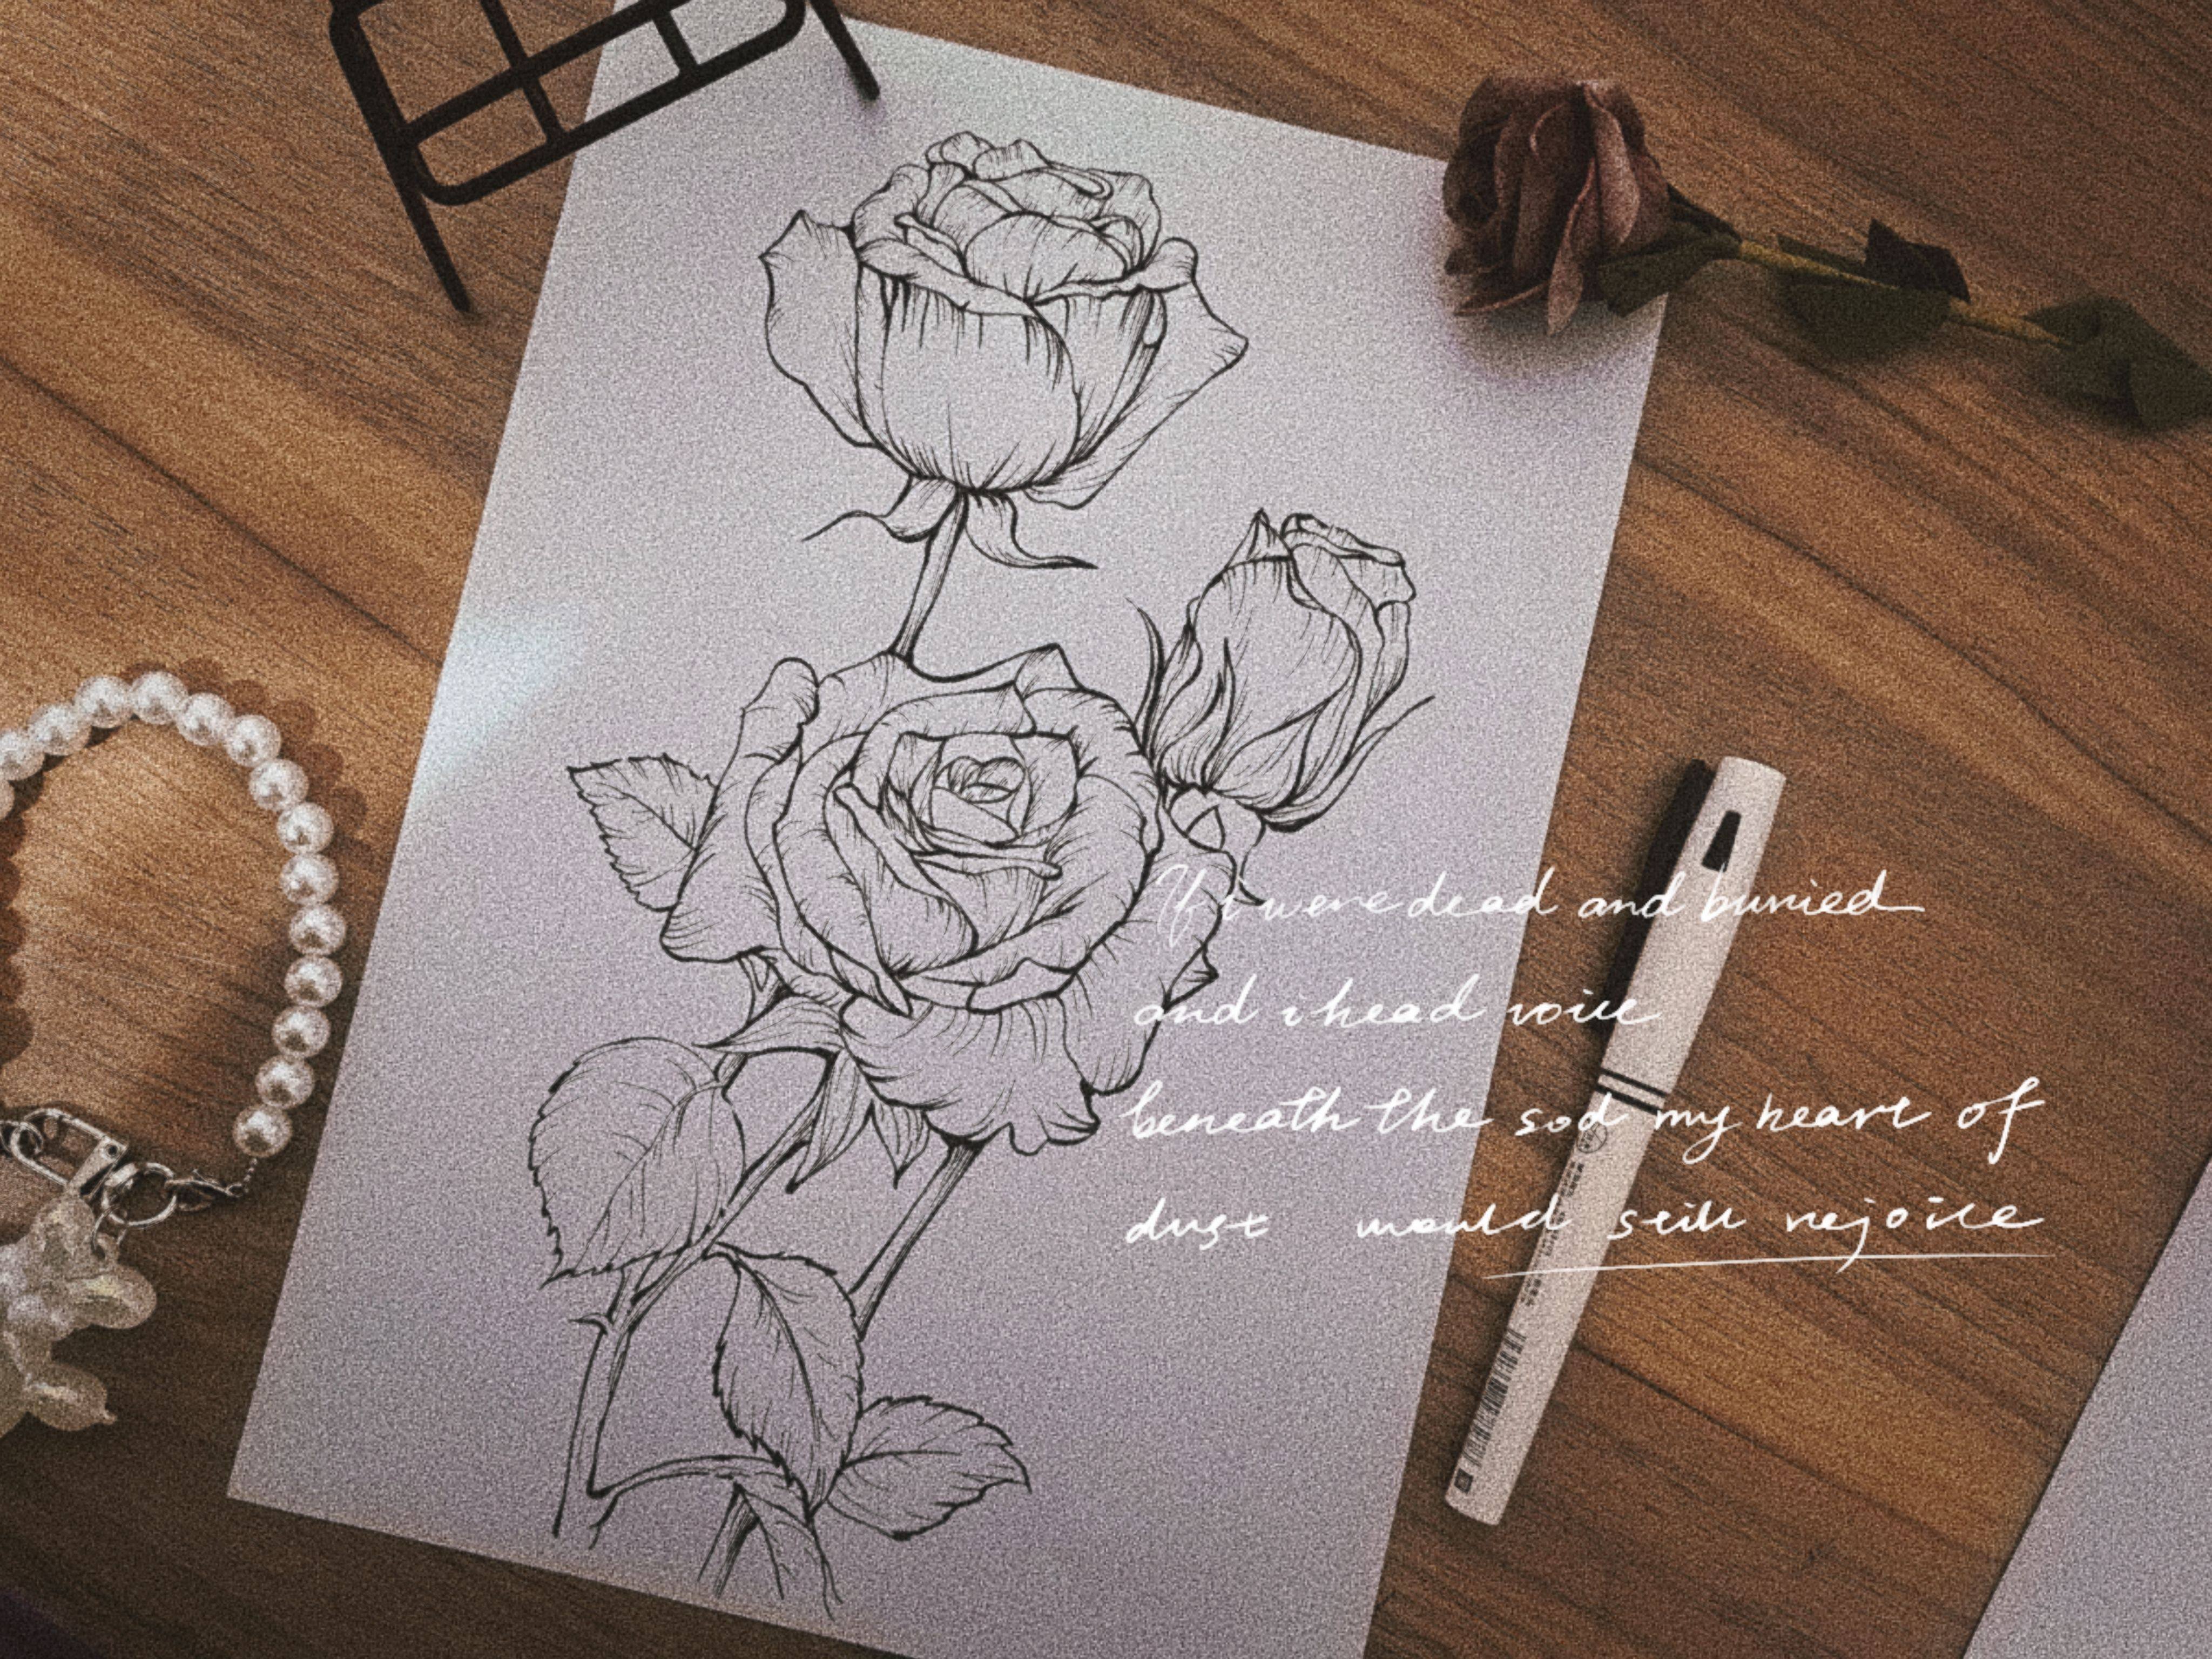 If i were dead and buried
and i head voice
beneath the sod my heart of
dust would still rejoice